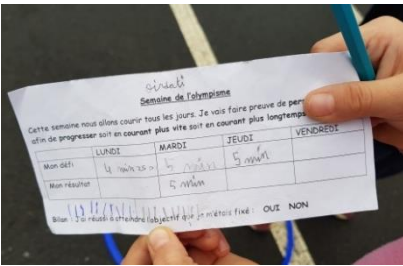 Semaine de l'olympisme
Cette semaine nous allons courir tous les jours. Je vais faire preuve de pers
afin de progresser soit en courant plus vite soit en courant plus longtemps
LUNDI MARDI JEUDI VENDREDI
Mon défi 4 min 5 min 5 min
Mon résultat 5 min
Bilan : J'ai réussi à atteindre l'objectif que je m'étais fixé : OUI NON